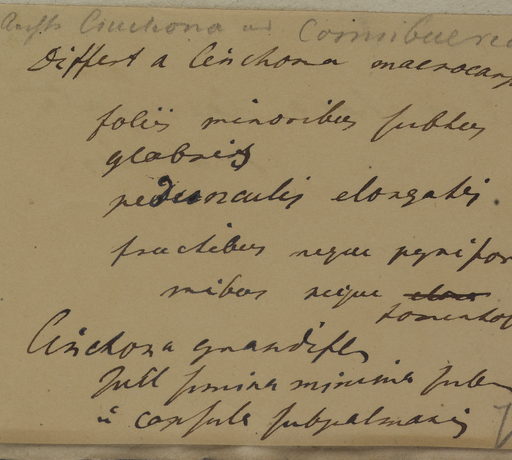 Cinchona
Differt a Cinchona macrocarp
foliis minoribus subtus
glabris
pedunculis elongatis
fructibus neque pyrifor
mibus neque
tomentos
Cinchona grandifl
semina minima sub
capsula subpalmaris